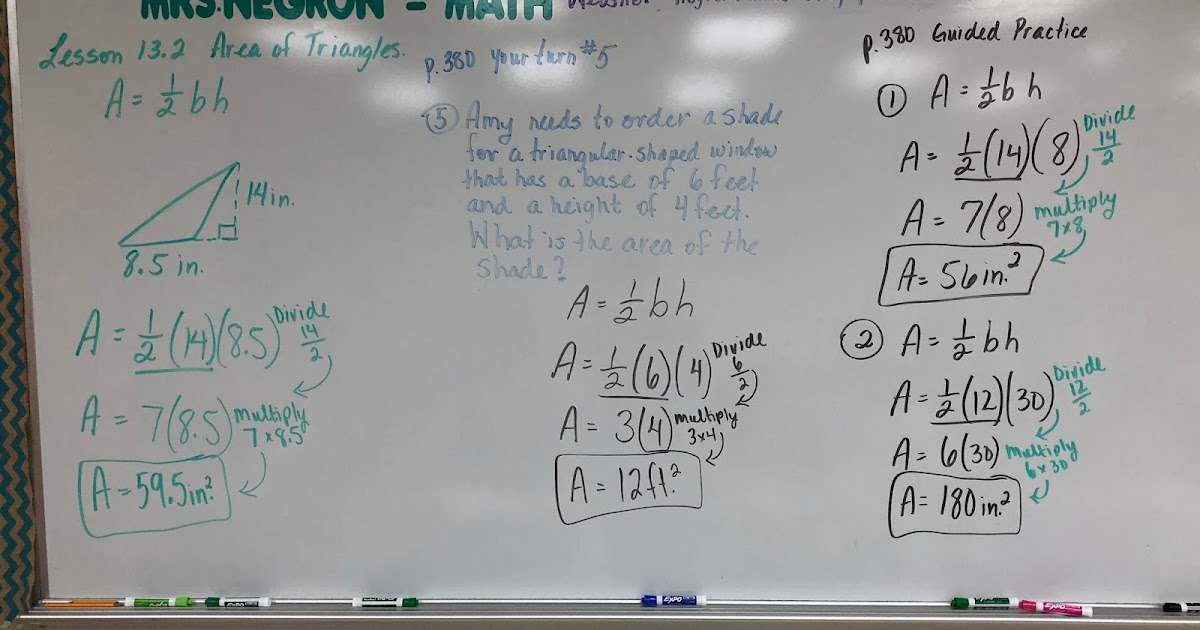 MRS. NEGRON - MATH
Lesson 13.2 Area of Triangles.
A = 1/2 bh
14in.
8.5 in.
A = 1/2 (14)(8.5) Divide 14/2
A = 7(8.5) multiply 7 x 8.5
A = 59.5in.²
p.380 Your turn #5
⑤ Amy needs to order a shade
for a triangular-shaped window
that has a base of 6 feet
and a height of 4 feet.
What is the area of the
shade?
A = 1/2 bh
A = 1/2 (6)(4) Divide 6/2
A = 3(4) multiply 3x4
A = 12ft.²
p.380 Guided Practice
① A = 1/2 bh
A = 1/2 (14)(8) Divide 14/2
A = 7(8) multiply 7x8
A = 56in.²
② A = 1/2 bh
A = 1/2 (12)(30) Divide 12/2
A = 6(30) multiply 6x30
A = 180in.²
EXPO